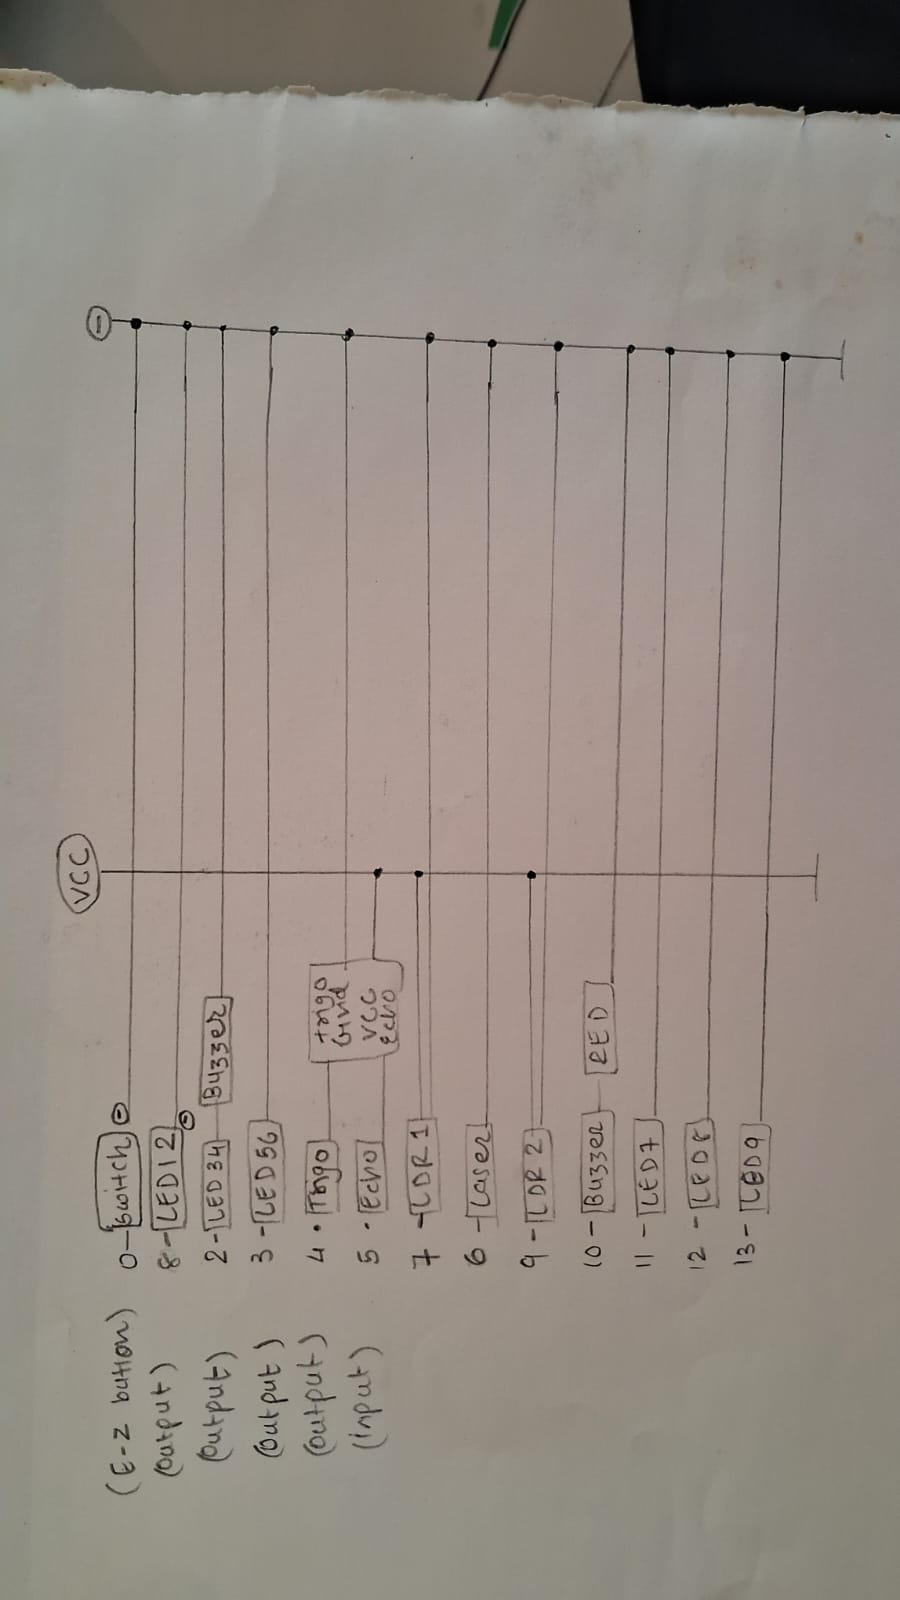 VCC
⊖
(E-Z button) 0 - Switch ⊖
(Output) 8 - LED12 ⊖
(Output) 2 - LED 34 - Buzzer
(Output) 3 - LED56
(Output) 4 • Trigo
trigo
Gnd
VCC
Echo
(input) 5 • Echo
7 - LDR 1
6 - Laser
9 - LDR 2
10 - Buzzer - RED
11 - LED7
12 - LED8
13 - LED9